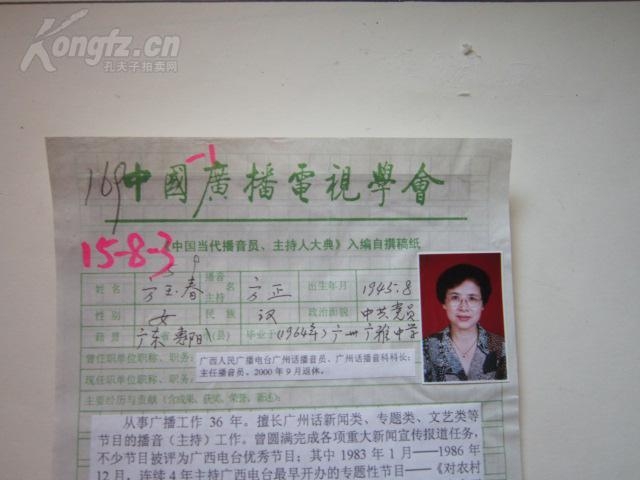 Kongfz.cn
孔夫子拍卖网
-1
169
中國廣播電視學會
15-8-3
《中国当代播音员、主持人大典》入编自撰稿纸
姓名 方玉春 播音主持名 方正 出生年月 1945.8
性别 女 民族 汉 政治面貌 中共党员
籍贯 广东 省 惠阳 (县) 毕业于 (1964年) 广州广雅中学
曾任职单位职称、职务:
现任职单位职称、职务:
广西人民广播电台广州话播音员、广州话播音科科长;
主任播音员。2000年9月退休。
主要经历与贡献(含成果、获奖、荣誉、著述):
从事广播工作36年。擅长广州话新闻类、专题类、文艺类等
节目的播音(主持)工作。曾圆满完成各项重大新闻宣传报道任务,
不少节目被评为广西电台优秀节目;其中1983年1月——1986年
12月,连续4年主持广西电台最早开办的专题性节目——《对农村